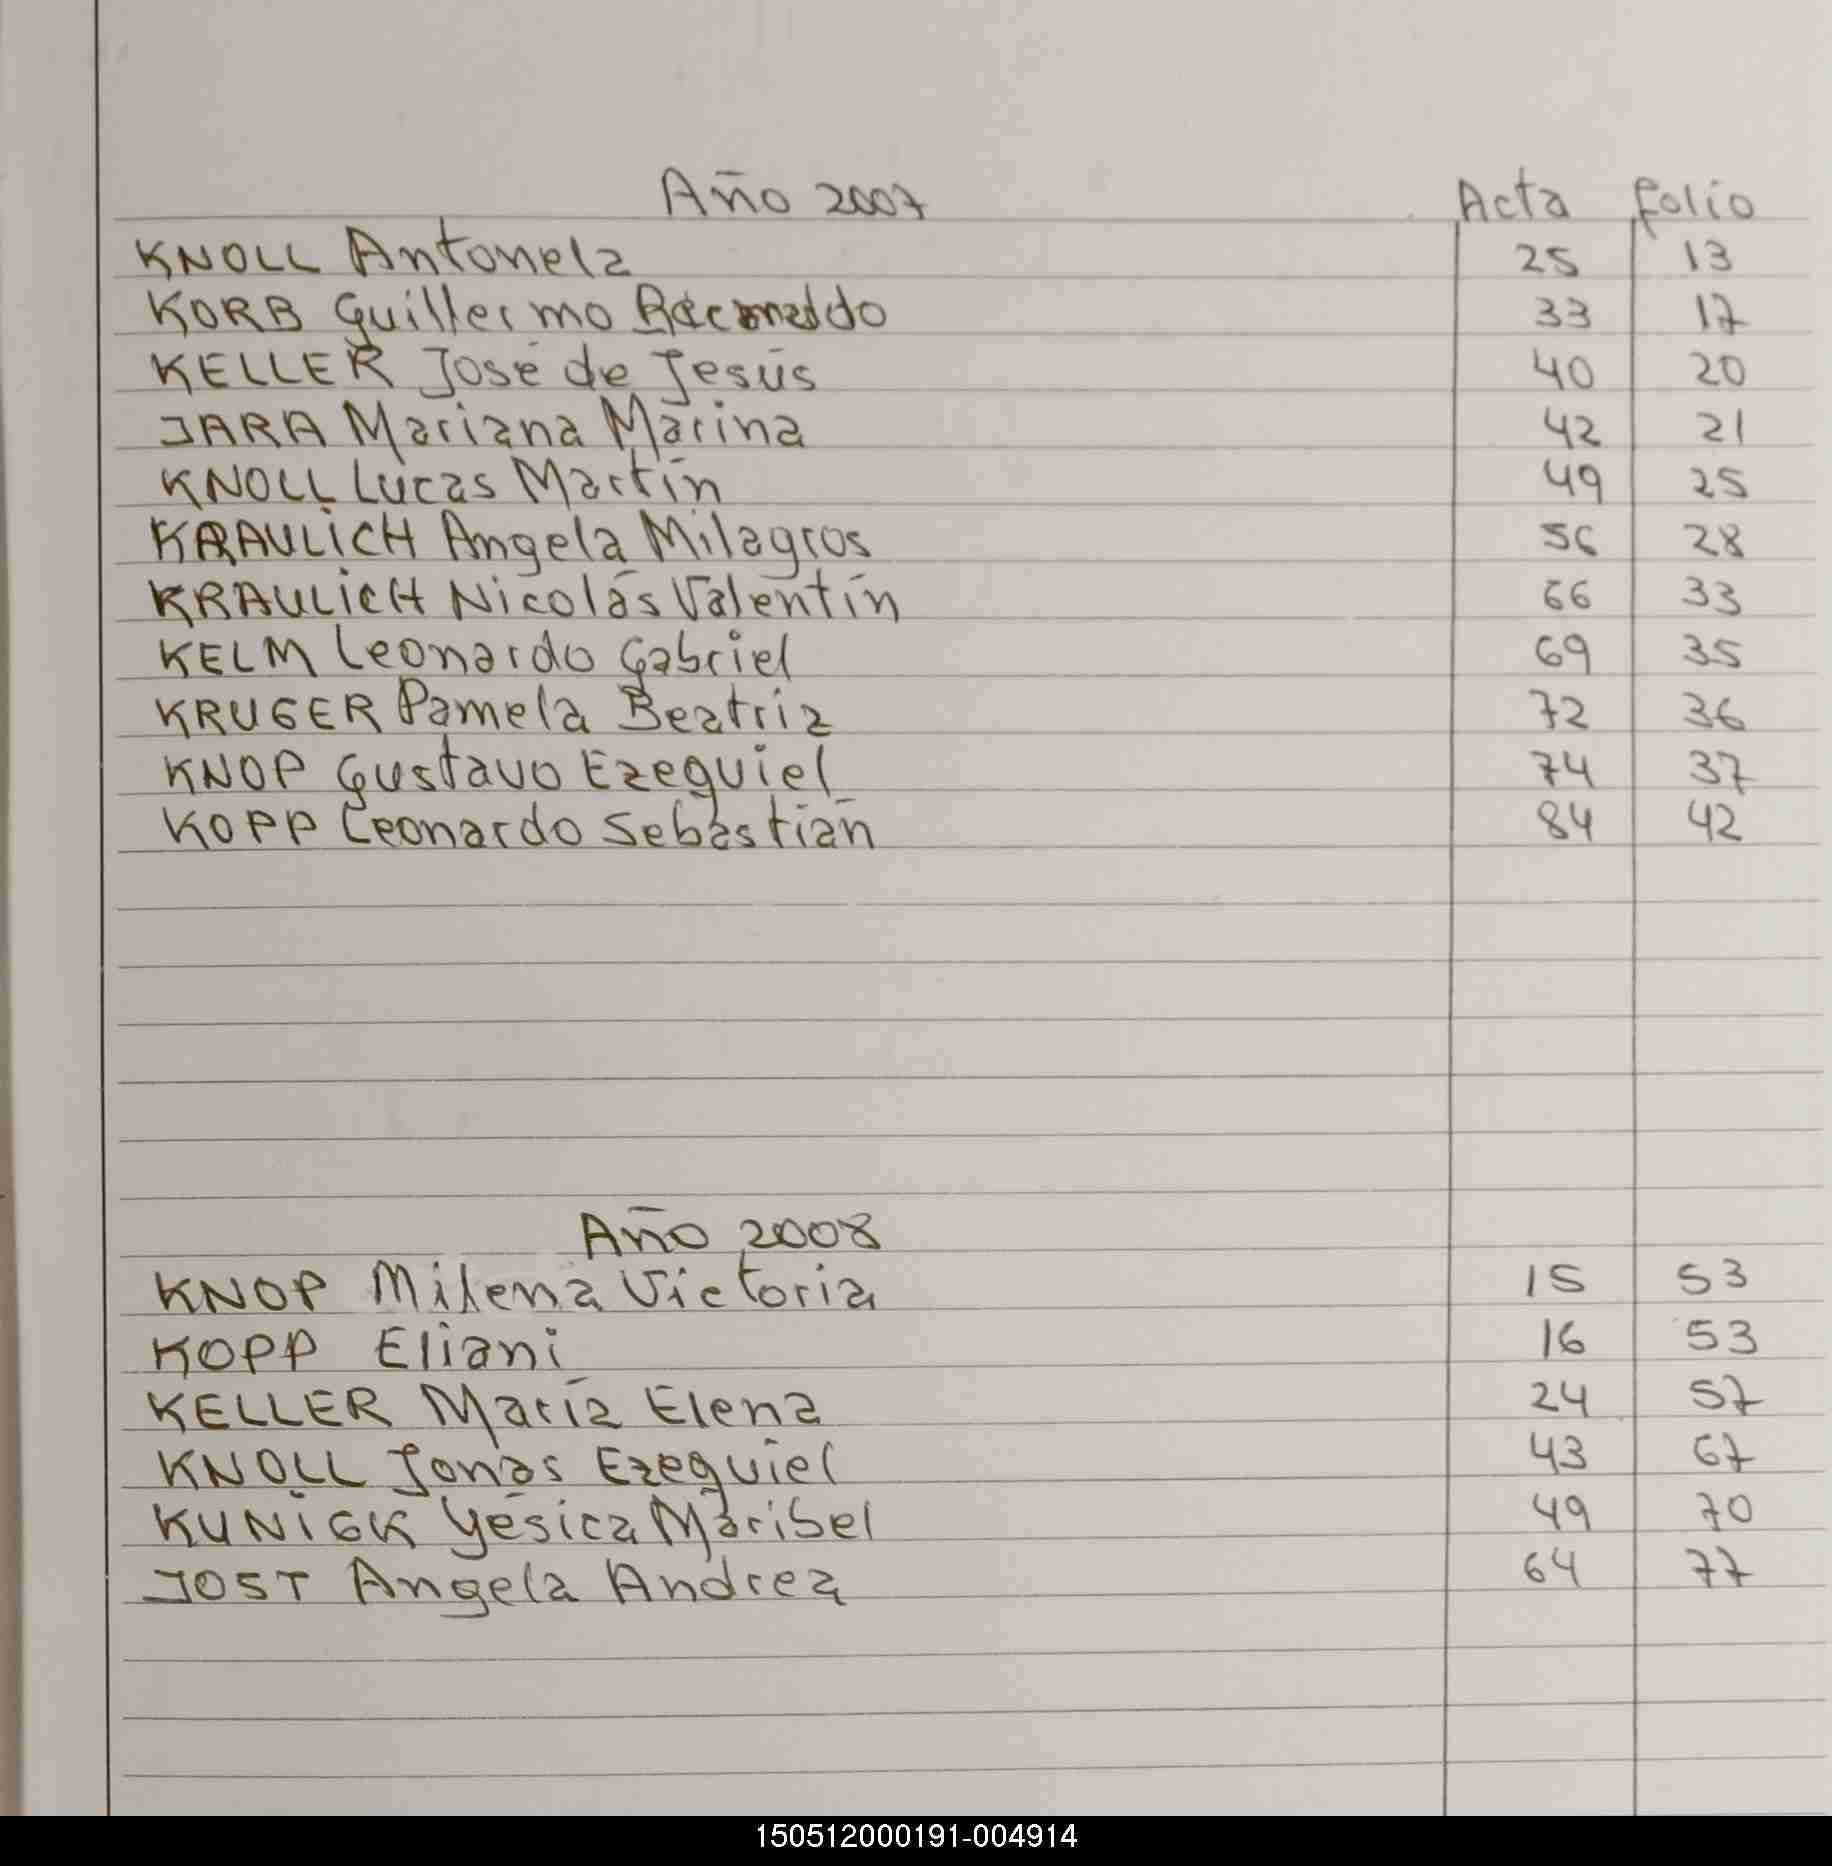 Año 2007 Acta folio
KNOLL Antonela 25 13
KORB Guillermo 33 17
KELLER José de Jesús 40 20
JARA Mariana Marina 42 21
KNOLL Lucas Martín 49 25
KRAULICH Angela Milagros 56 28
KRAULICH Nicolás Valentín 66 33
KELM Leonardo Gabriel 69 35
KRUGER Pamela Beatriz 72 36
KNOP Gustavo Ezequiel 74 37
KOPP Leonardo Sebastián 84 42
Año 2008
KNOP Milena Victoria 15 53
KOPP Eliani 16 53
KELLER María Elena 24 57
KNOLL Jonas Ezequiel 43 67
KUNIGK Yésica Maribel 49 70
JOST Angela Andrea 64 77
150512000191-004914